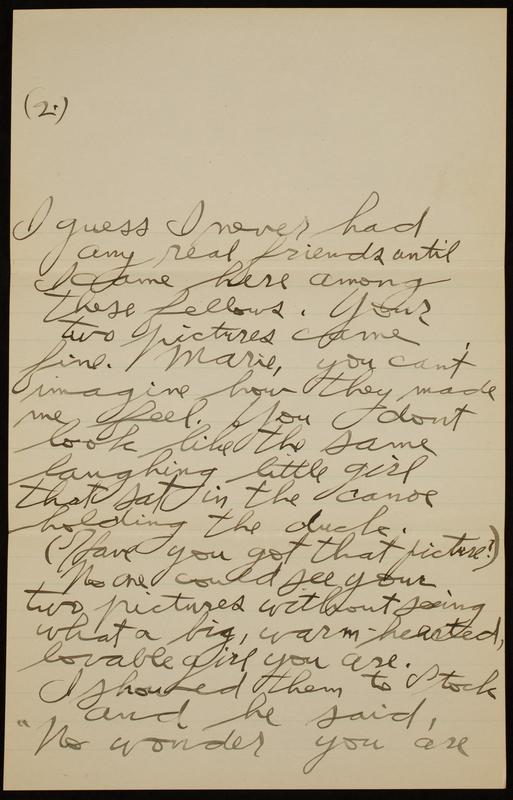 (2.)
I guess I never had
any real friends until
I came here among
these fellows. Your
two pictures came
fine. Marie, you can't
imagine how they made
me feel. You dont
look like the same
laughing little girl
that sat in the canoe
holding the duck.
(Have you got that picture?)
No one could see your
two pictures without seeing
what a big, warm-hearted,
lovable girl you are.
I showed them to Stock
and he said,
"No wonder you are